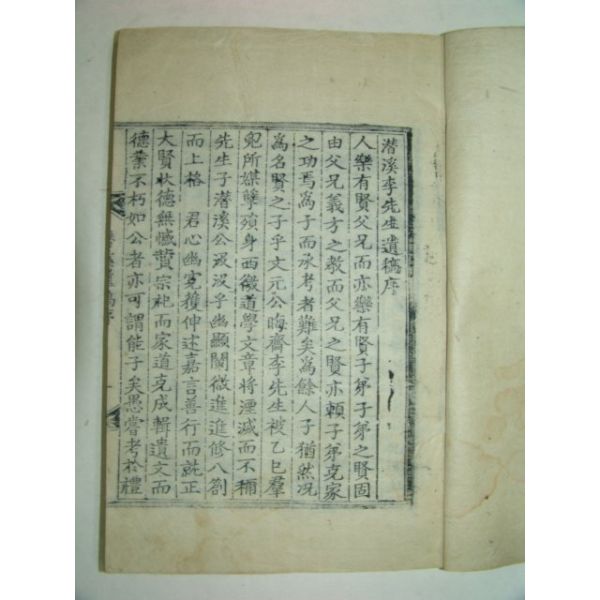 潜溪李先生遺稿序
人樂有賢父兄而亦樂有賢子弟子弟之賢固
由父兄義方之教而父兄之賢亦賴子弟克家
之功焉爲子而承考者難矣爲餘人子猶然况
爲名賢之子乎文元公晦齋李先生被乙巳羣
兇所媒孽殞身西徼道學文章將湮滅而不稱
先生子潜溪公汲汲乎幽顯闡微進進修八劄
而上格 君心幽寃獲伸述嘉言善行而就正
大賢狀德無憾賛宗祀而家道克成輯遺文而
德業不朽如公者亦可謂能子矣愚嘗考於禮